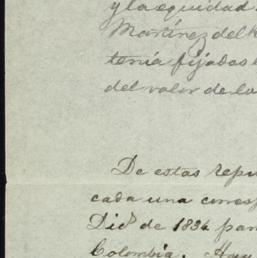 y la equidad
Martínez del
tenía fijadas
del valor de la
De estas repu
cada una corresp
Dic.º de 1834 par
Colombia. Hay